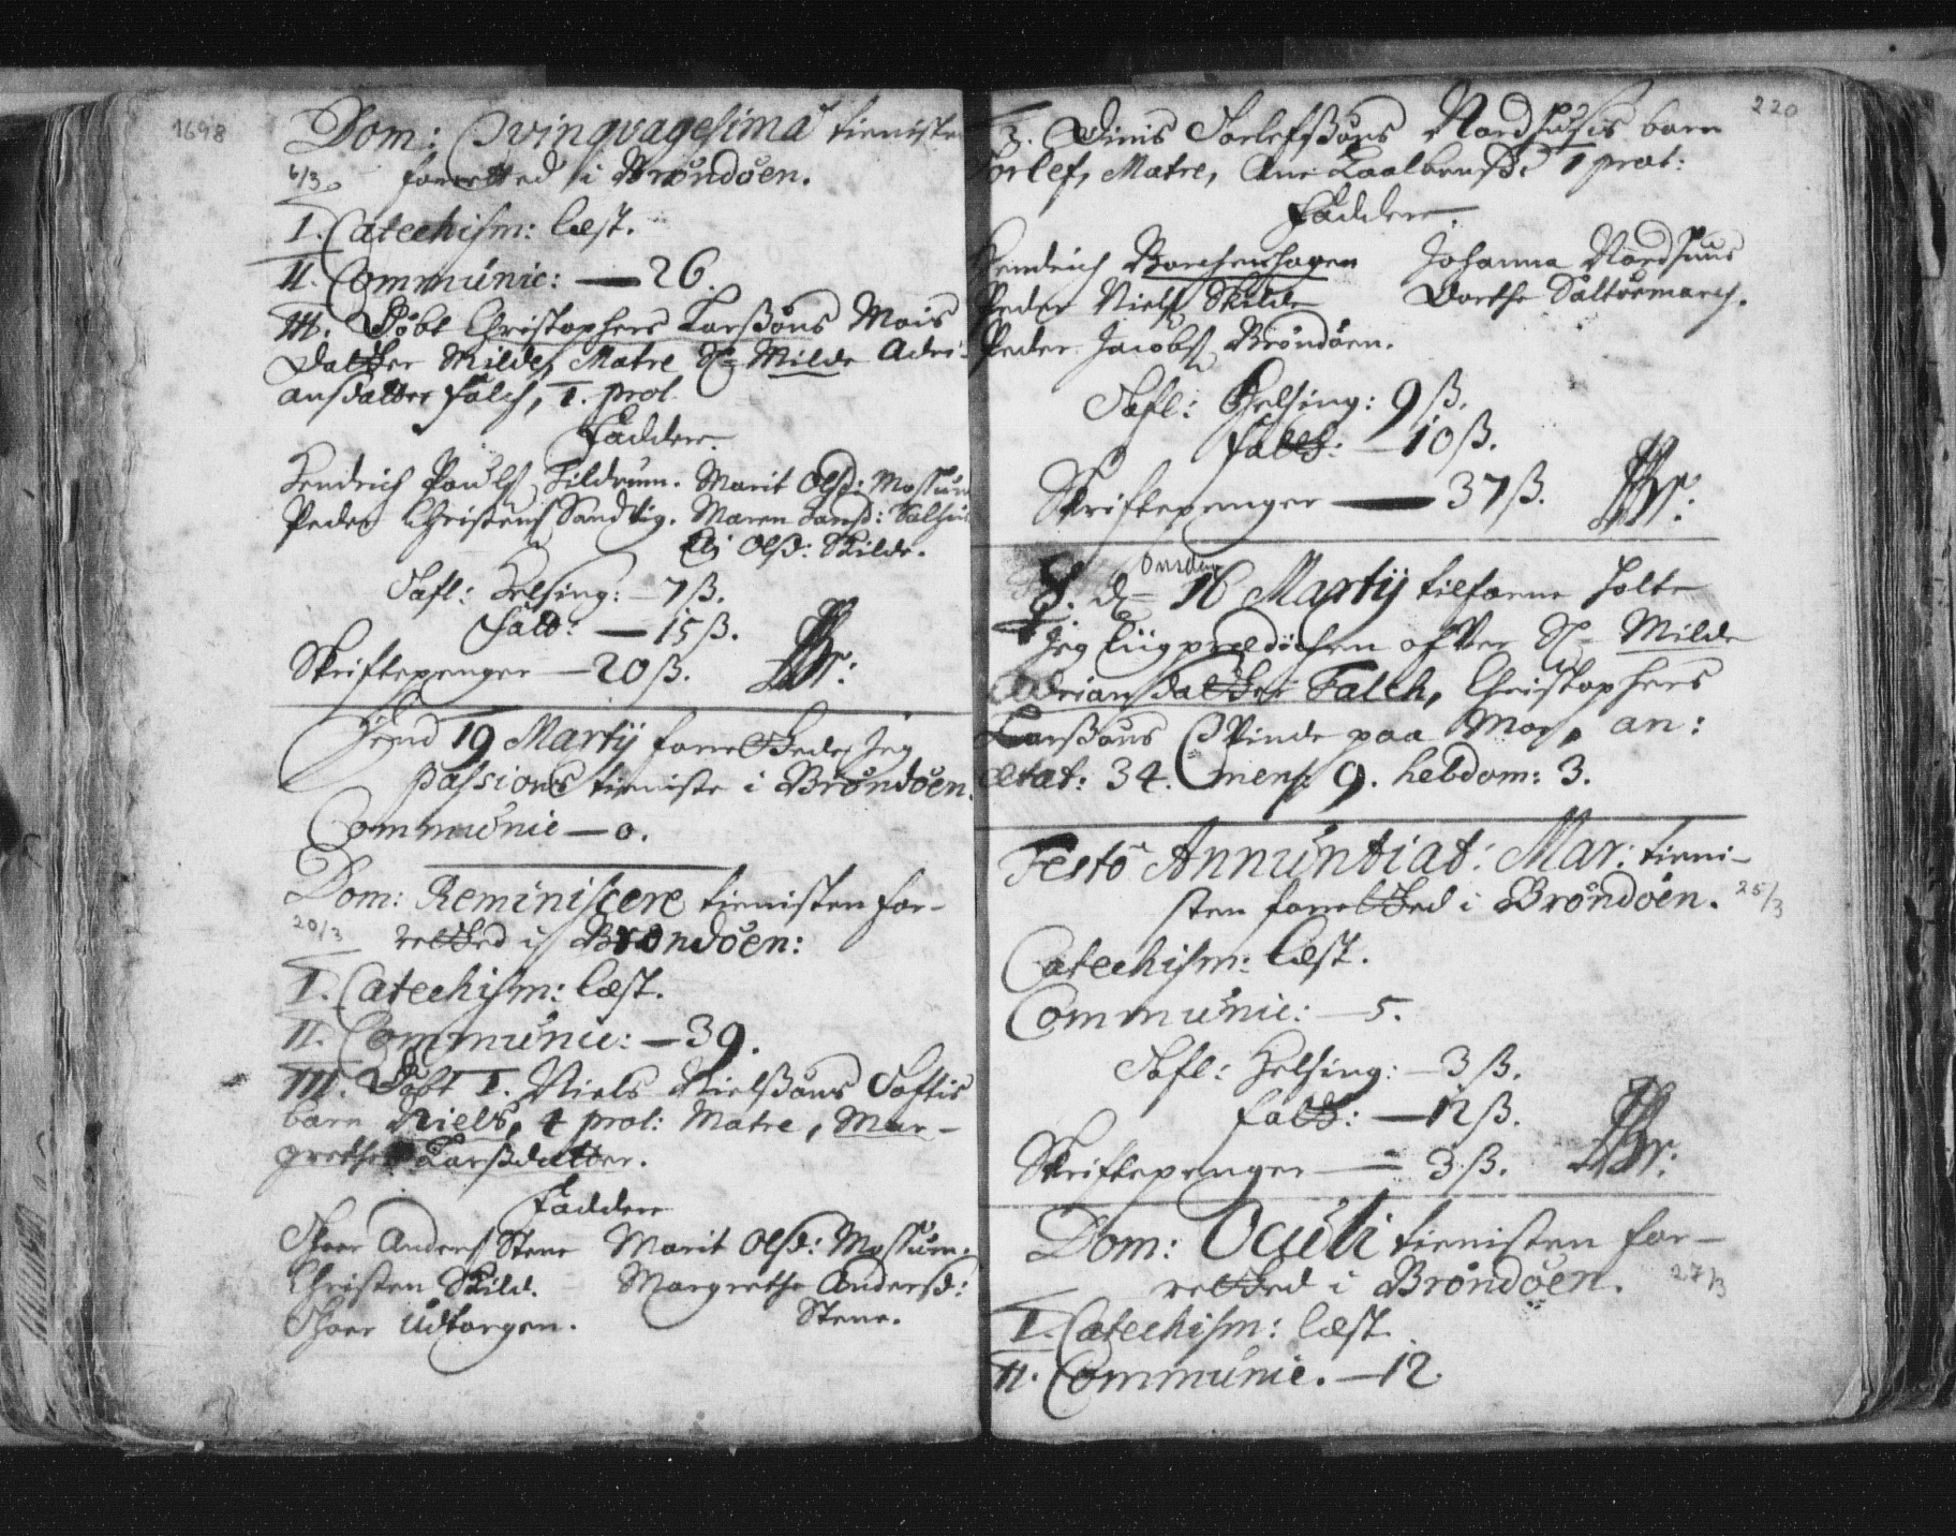 1698
Dom: Qvinqvagesima tieniste
6/3. forretted i Brøndøen.
I. Catechism: læst.
II. Communic: — 26.
III. Døbt Christophers Larssøns Mois
Datter Milde, Matre Sl. Milde Adri-
ansdatter Falch, 1. prol.
Faddere.
Hendrich Pouls Tildrum. Marit Olsd: Mossum
Peder Christens Sandvig. Maren Larsd: Salhus
Eli Olsd: Skilde.
Tafl: Helsing: — 7 ß.
Fald: — 15 ß.
Skriftepenger — 20 ß.
19 Martij forrettede Jeg
passions tieniste i Brøndøen.
Communic — 0.
Dom: Reminiscere tienisten for-
20/3 retted i Brøndøen:
I. Catechism: læst.
II. Communic: — 39.
III. Døbt 1. Niels Nielssøns Toftis
barn Niels, 4 prol: Matre, Mar-
grethe Larsdatter.
Faddere
Thoer Anders Stene Marit Olsd: Mossum.
Christen Skild. Margrethe Andersd:
Thoer Udtorgen. Stene.
220
3. Torlefssøns Nordhusis barn
Torlef, Matre, Ane 1 prol:
Faddere.
Hendrich Borchenhagen Johanna Nordhuus
Peder Niels Skilde Dorthe Saltuemarch.
Peder Jacobs Brøndøen.
Tafl: Helsing: 9 ß.
Fald: — 10 ß.
Skriftepenger — 37 ß.
Onsdag
d. 16 Martij tilforne holte
Jeg Liigprædichen ofver Sl. Milde
Adriansdatter Falch, Christophers
Larssøns Qvinde paa Moe, an:
ætat: 34. mens. 9. hebdom: 3.
Festo Annuntiat: Mar: tieni-
sten forretted i Brøndøen. 25/3
Catechism: læst.
Communic: — 5.
Tafl: Helsing: — 3 ß.
Fald: — 12 ß.
Skriftepenger — 3 ß.
Dom: Oculi tienisten for-
retted i Brøndøen. 27/3
I. Catechism: læst.
II. Communic. — 12.